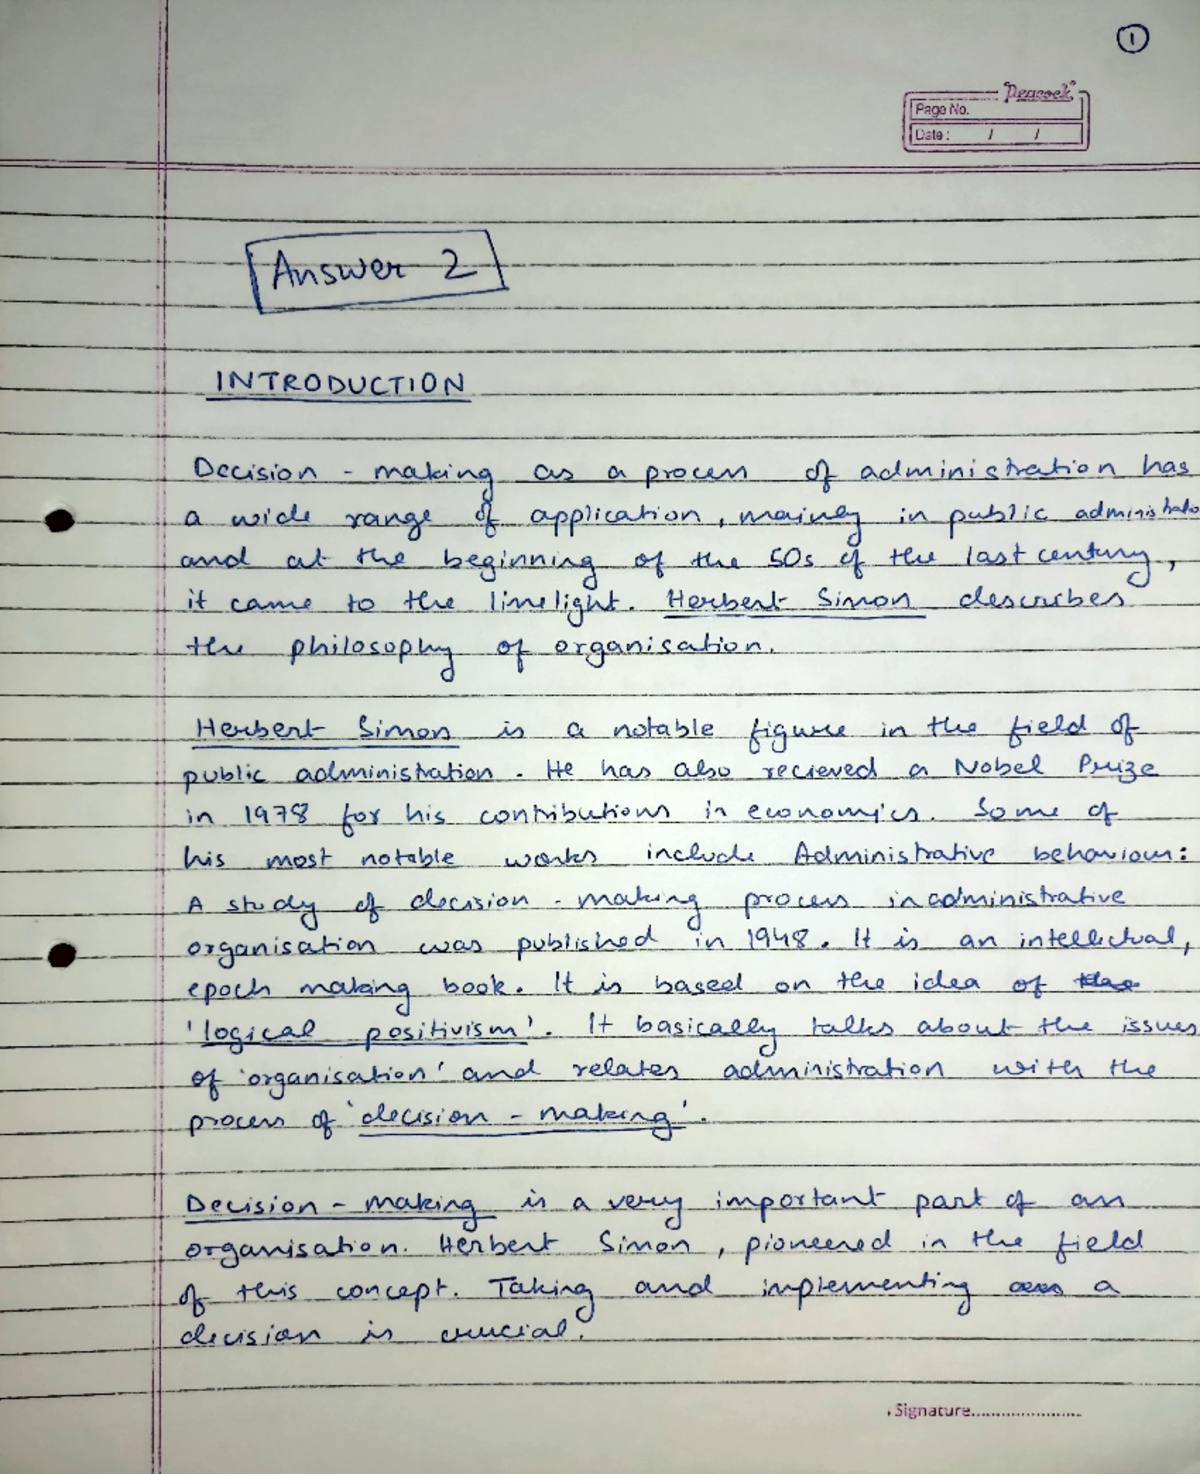 1
"Peacock"
Page No.
Date : / /
Answer 2
INTRODUCTION
Decision - making as a process of administration has
a wide range of application, mainly in public administratio
and at the beginning of the 50s of the last century,
it came to the limelight. Herbert Simon describes
the philosophy of organisation.
Herbert Simon is a notable figure in the field of
public administration. He has also recieved a Nobel Prize
in 1978 for his contributions in economics. Some of
his most notable works include Administrative behaviour:
A study of decision - making process in administrative
organisation was published in 1948. It is an intellectual,
epoch making book. It is based on the idea of
'logical positivism'. It basically talks about the issues
of 'organisation' and relates administration with the
process of 'decision - making'.
Decision - making is a very important part of an
organisation. Herbert Simon, pioneered in the field
of this concept. Taking and implementing a
decision is crucial.
Signature......................